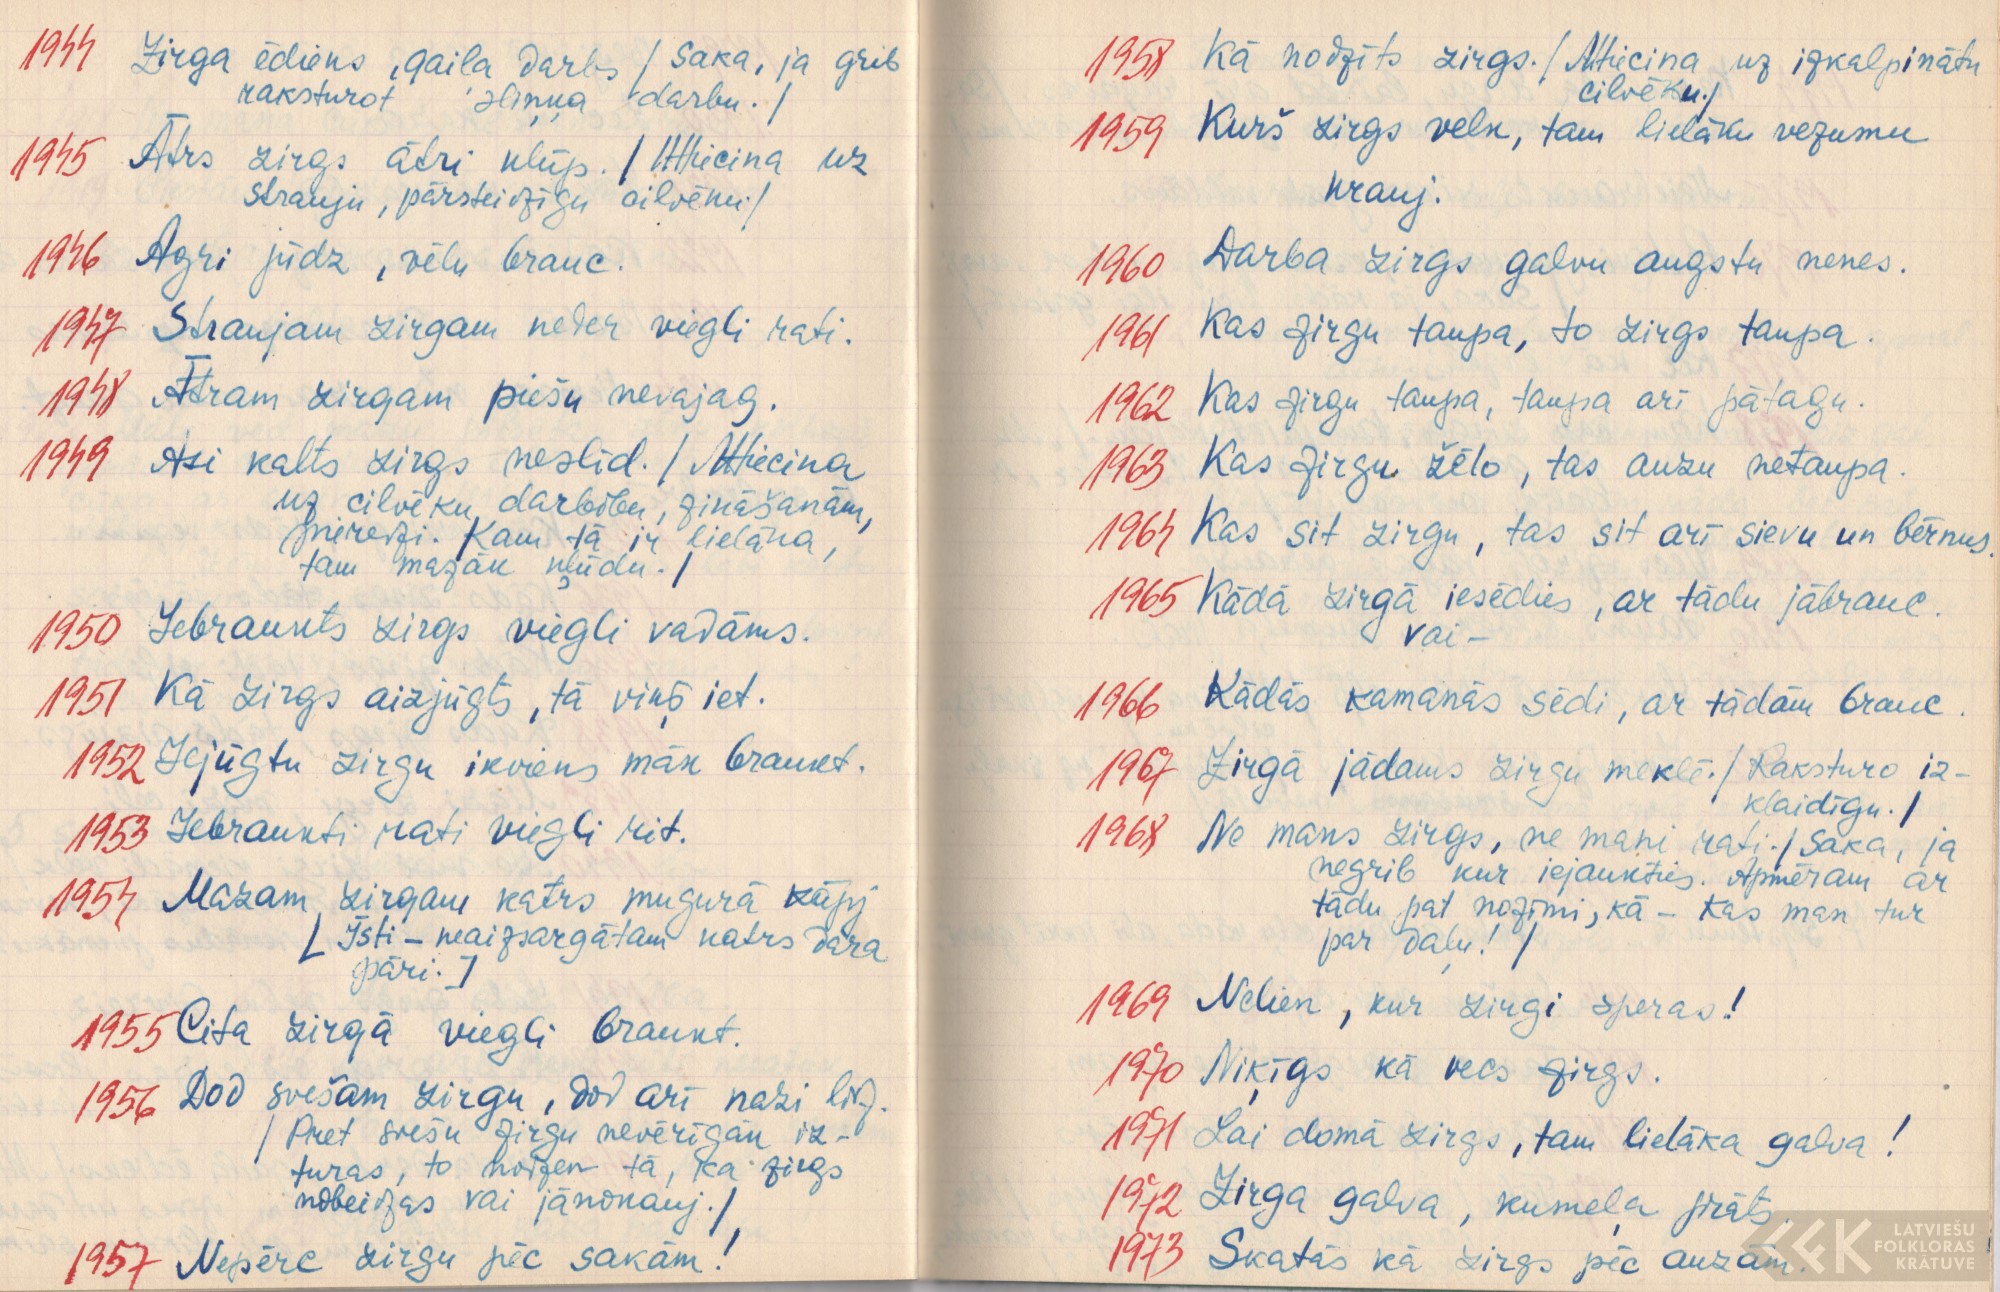 1944 Zirga ēdiens, gaiļa darbs / Saka, ja grib
raksturot sliņķa darbu. /
1945 Ātrs zirgs ātri klūp. / Attiecina uz
strauju, pārsteidzīgu cilvēku. /
1946 Agri jūdz, vēlu brauc.
1947 Straujam zirgam neder viegli rati.
1948 Ātram zirgam piešu nevajag.
1949 Asi kalts zirgs neslīd. / Attiecina
uz cilvēku darbību, zināšanām,
pieredzi. Kam tā ir lielāka,
tam mazāk kļūdu. /
1950 Iebraukts zirgs viegli vadāms.
1951 Kā zirgs aizjūgts, tā viņš iet.
1952 Iejūgtu zirgu ikviens māk braukt.
1953 Iebraukti rati viegli rit.
1954 Mazam zirgam katrs mugurā kāpj
[ Īsti – neaizsargātam katrs dara
pāri. ]
1955 Cita zirgā viegli braukt.
1956 Dod svešam zirgu, dod arī nazi līdz.
/ Pret svešu zirgu nevērīgāk iz-
turas, to nodzen tā, ka zirgs
nobeidzas vai jānokauj. /
1957 Nepērc zirgu pēc sakām!
1958 Kā nodzīts zirgs. / Attiecina uz izkalpinātu
cilvēku. /
1959 Kurš zirgs velk, tam lielāku vezumu
krauj.
1960 Darba zirgs galvu augstu nenes.
1961 Kas zirgu taupa, to zirgs taupa.
1962 Kas zirgu taupa, taupa arī pātagu.
1963 Kas zirgu žēlo, tas auzu netaupa.
1964 Kas sit zirgu, tas sit arī sievu un bērnus.
1965 Kādā zirgā iesēdies, ar tādu jābrauc.
vai –
1966 Kādās kamanās sēdi, ar tādām brauc.
1967 Zirgā jādams zirgu meklē. / Raksturo iz-
klaidīgu. /
1968 Ne mans zirgs, ne mani rati. / Saka, ja
negrib kur iejaukties. Apmēram ar
tādu pat nozīmi, kā – Kas man tur
par daļu! /
1969 Nelien, kur zirgi speras!
1970 Niķīgs kā vecs zirgs.
1971 Lai domā zirgs, tam lielāka galva!
1972 Zirga galva, kumeļa prāts.
1973 Skatās kā zirgs pēc auzām.
LATVIEŠU
FOLKLORAS
KRĀTUVE